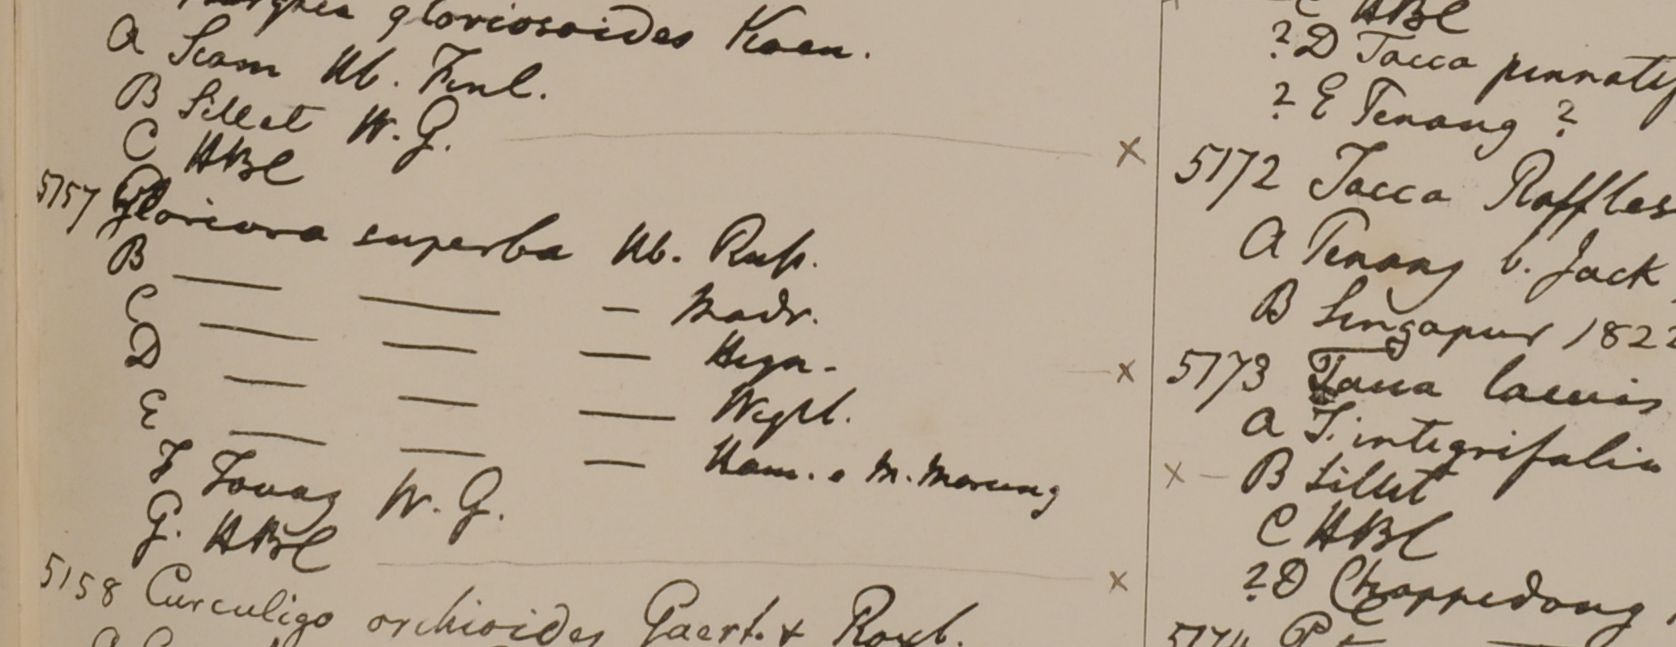 gloriosoides Koen.
A Siam Hb. Finl.
B Sillet W. G.
C HBC
5157 Gloriosa superba Hb. Russ.
B — — — Madr.
C — — — Heyn.
D — — — Wight.
E — — — Ham. e M. Morung
F Tovay W. G.
G. HBC
5158 Curculigo orchioides Gaert. & Roxb.
C HBC
? D Tacca pinnatif
? E Penang ?
5172 Tacca Raffles
A Penang b. Jack
B Singapur 1822
5173 Tacca laevis
A T. integrifolia
B Sillet
C HBC
? D Chappedong
5174